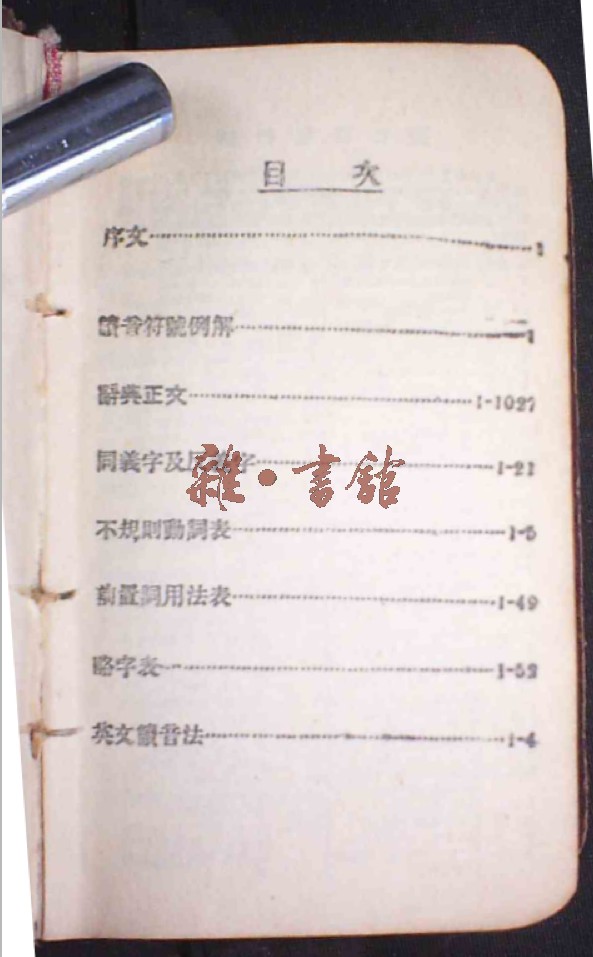 目 次
序文……1
讀音符號例解……1
辭典正文……1-1027
同義字及反義字……1-21
不規則動詞表……1-5
前置詞用法表……1-49
略字表……1-52
英文讀音法……1-4
雜·書館